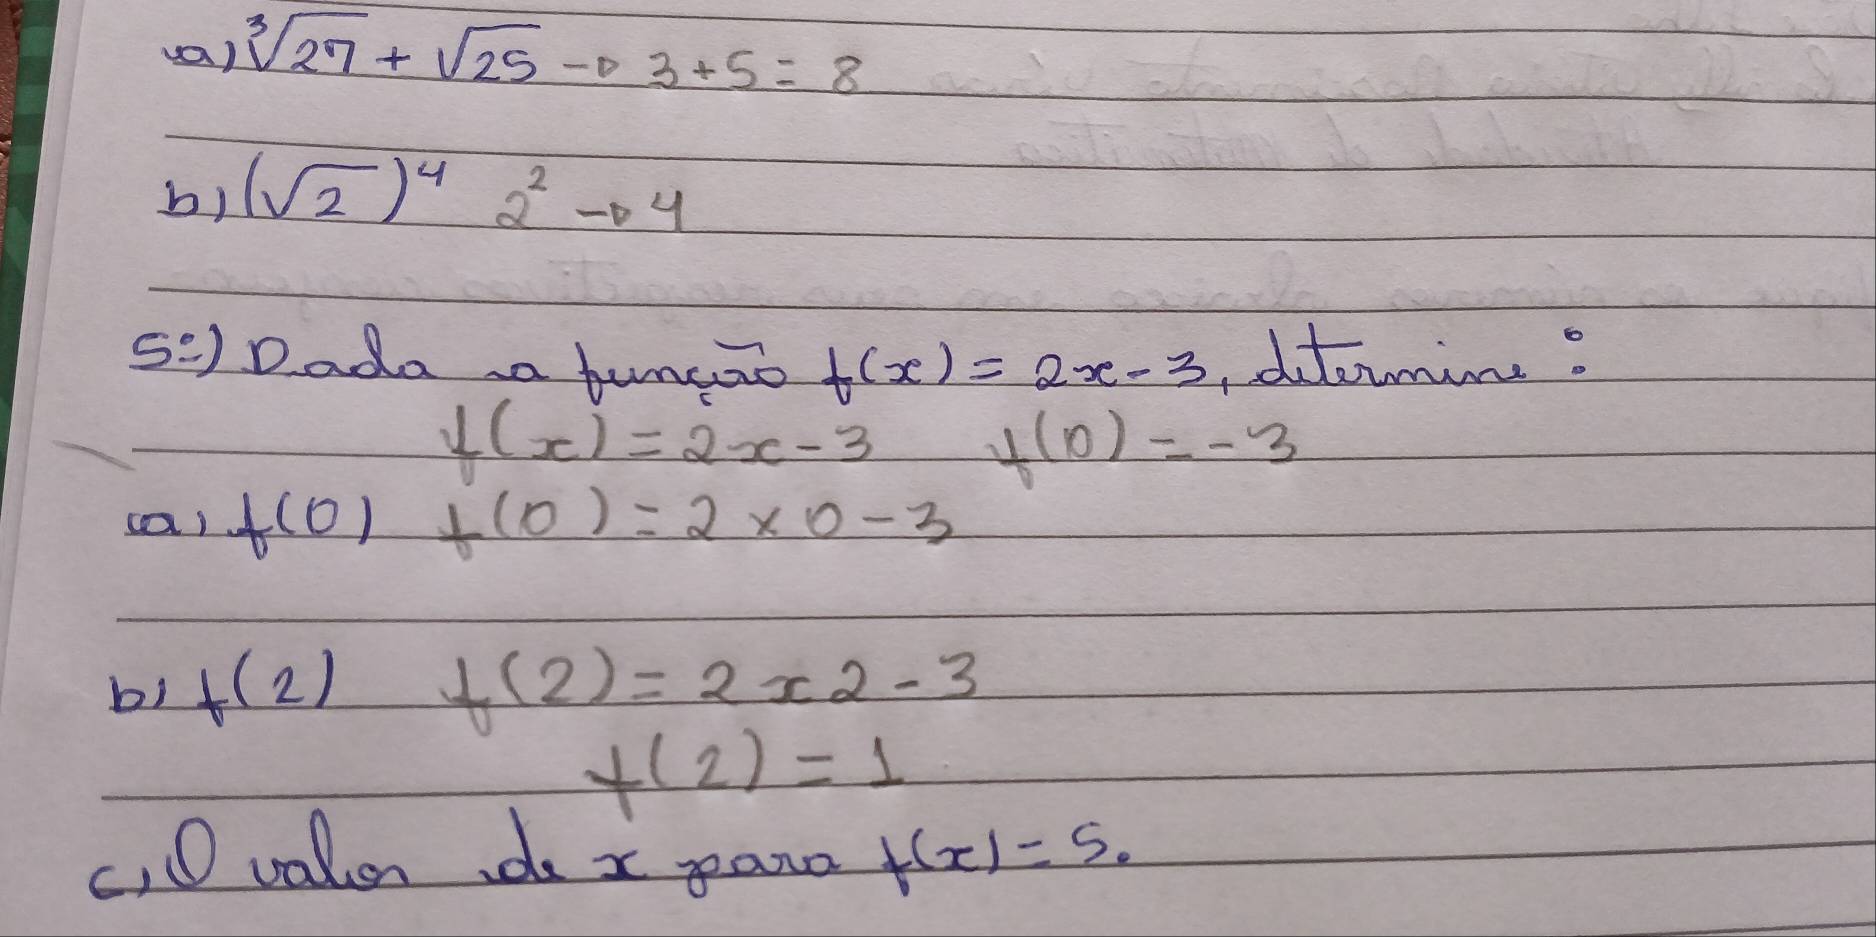 a) ∛27 + √25 → 3+5 = 8
b) (√2)⁴ 2² → 4
5º) Dada a função f(x) = 2x - 3, determine:
f(x) = 2x - 3 f(0) = -3
a) f(0) f(0) = 2 × 0 - 3
b) f(2) f(2) = 2 x 2 - 3
f(2) = 1
c) O valor de x para f(x) = 5.